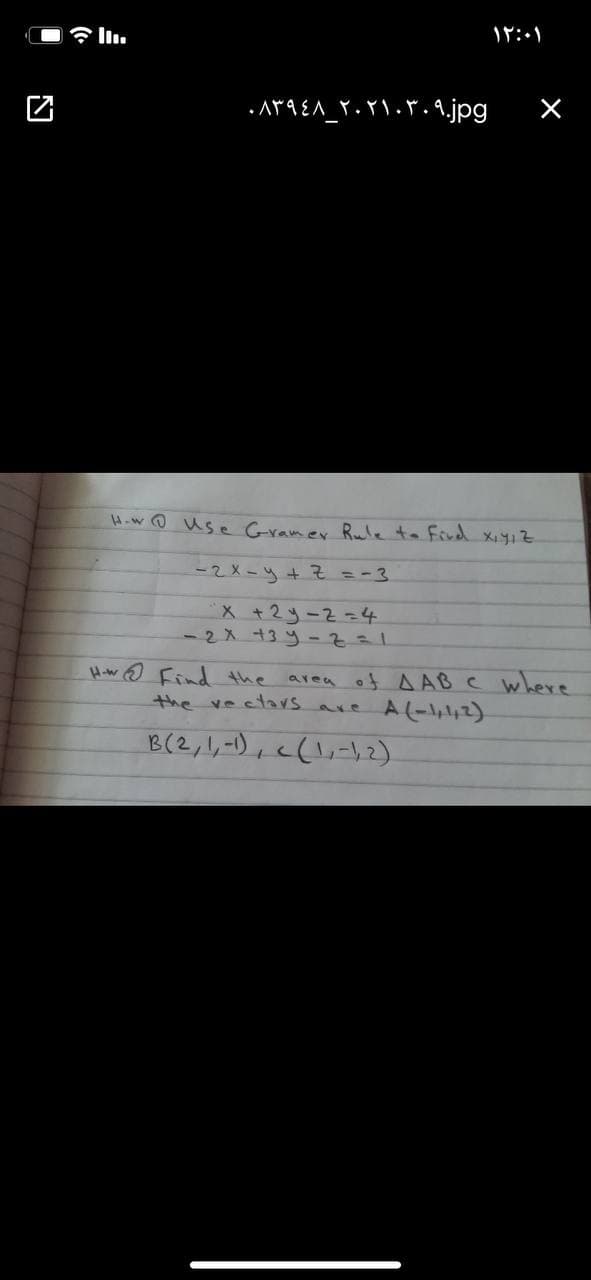 ١٢:٠١
٠٨٣٩٤٨_٢٠٢١٠٣٠٩.jpg
H.w ① Use Gramer Rule to Find x,y,z
-2x-y+z=-3
x+2y-z=4
-2x+3y-z=1
H.w ② Find the area of ΔABC where
the vectors are A(-1,1,2)
B(2,1,-1), c(1,-1,2)